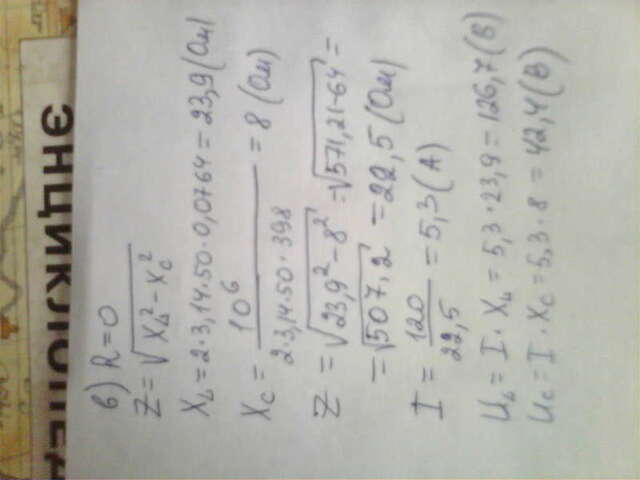 в) R=0
Z = √(X_L² - X_C²)
X_L = 2·3,14·50·0,0764 = 23,9 (Ом)
X_C = 10⁶ / 2·3,14·50·398 = 8 (Ом)
Z = √(23,9² - 8²) = √(571,21-64) =
= √507,2 = 22,5 (Ом)
I = 120 / 22,5 = 5,3 (А)
U_L = I · X_L = 5,3 · 23,9 = 126,7 (В)
U_C = I · X_C = 5,3 · 8 = 42,4 (В)
ЭНЦИКЛОПЕД